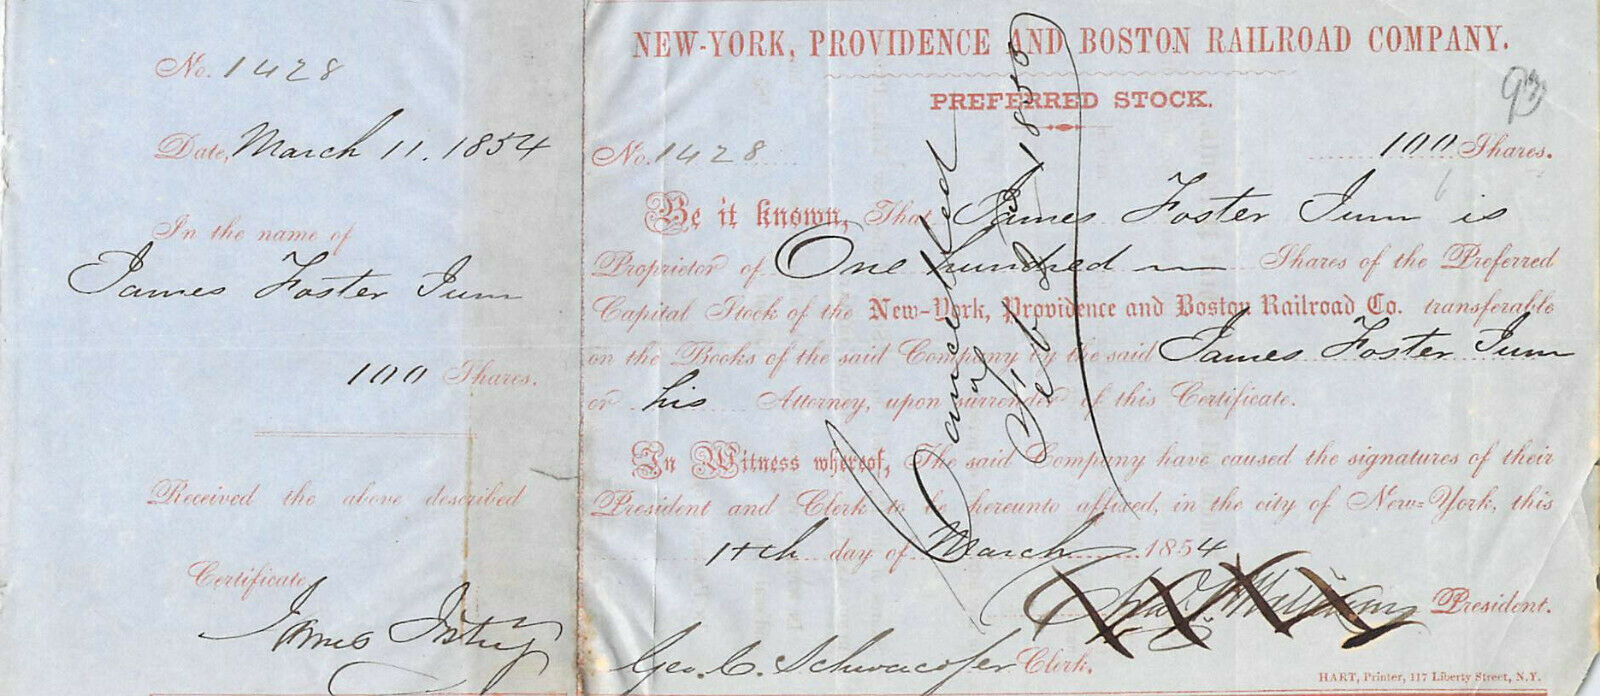 No. 1428
Date, March 11. 1854
In the name of
James Foster Junr
100 Shares.
Received the above described
Certificate
James Foster Jr
NEW-YORK, PROVIDENCE AND BOSTON RAILROAD COMPANY.
PREFERRED STOCK.
No. 1428 100 Shares.
Be it known, That James Foster Junr is
Proprietor of One hundred Shares of the Preferred
Capital Stock of the New-York, Providence and Boston Railroad Co. transferable
on the Books of the said Company by the said James Foster Junr
or his Attorney, upon surrender of this Certificate.
In Witness whereof, The said Company have caused the signatures of their
President and Clerk to be hereunto affixed, in the city of New-York, this
11th day of March 1854
President.
Geo. C. Schwacofer Clerk.
HART, Printer, 117 Liberty Street, N.Y.
Cancelled
Feb